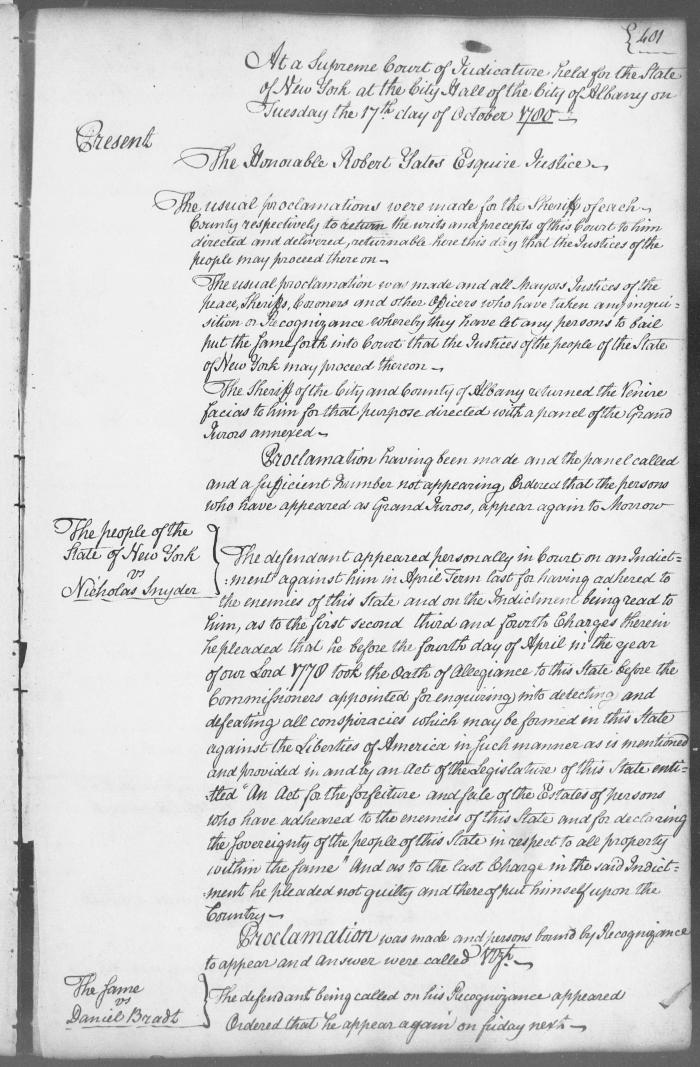 401
At a Supreme Court of Judicature held for the State
of New York at the City Hall of the City of Albany on
Tuesday the 17th day of October 1780
Present
The Honorable Robert Yates Esquire Justice
The usual proclamations were made for the Sheriff of each
County respectively to return the writs and precepts of this Court to him
directed and delivered, returnable here this day that the Justices of the
people may proceed thereon
The usual proclamation was made and all Mayors Justices of the
peace, Sheriffs, Coroners and other Officers who have taken any inqui=
sition or Recognizance whereby they have let any persons to bail
put the same forth into Court that the Justices of the people of the State
of New York may proceed thereon
The Sheriff of the City and County of Albany returned the Venire
facias to him for that purpose directed with a panel of the Grand
Jurors annexed
Proclamation having been made and the panel called
and a sufficient number not appearing, Ordered that the persons
who have appeared as Grand Jurors, appear again to Morrow
The people of the
State of New York
vs
Nicholas Snyder
The defendant appeared personally in Court on an Indict=
=ment against him in April Term last for having adhered to
the enemies of this State and on the Indictment being read to
him, as to the first second third and fourth Charges therein
he pleaded that he before the fourth day of April in the year
of our Lord 1778 took the Oath of Allegiance to this State before the
Commissioners appointed for enquiring into detecting and
defeating all conspiracies which may be formed in this State
against the Liberties of America in such manner as is mentioned
and provided in and by an Act of the Legislature of this State enti=
=tled "An Act for the forfeiture and sale of the Estates of persons
who have adheared to the enemies of this State and for declaring
the sovereignty of the people of this State in respect to all property
within the same" And as to the last Charge in the said Indict=
=ment he pleaded not guilty and thereof put himself upon the
Country
Proclamation was made and persons bound by Recognizance
to appear and answer were called Vizt.
The same
vs
Daniel Bradt
The defendant being called on his Recognizance appeared
Ordered that he appear again on friday next